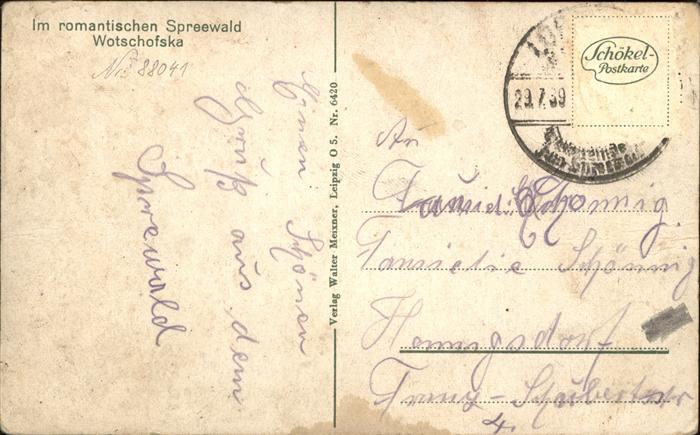 Im romantischen Spreewald
Wotschofska
Nr. 88041
Einen Schönen
Gruß aus dem
Spreewald
Verlag Walter Meixner, Leipzig O 5. Nr. 6420
Schökel-
Postkarte
29.7.39
An
Schönnig
Hennigsdorf
Franz-Schubertstr
4.